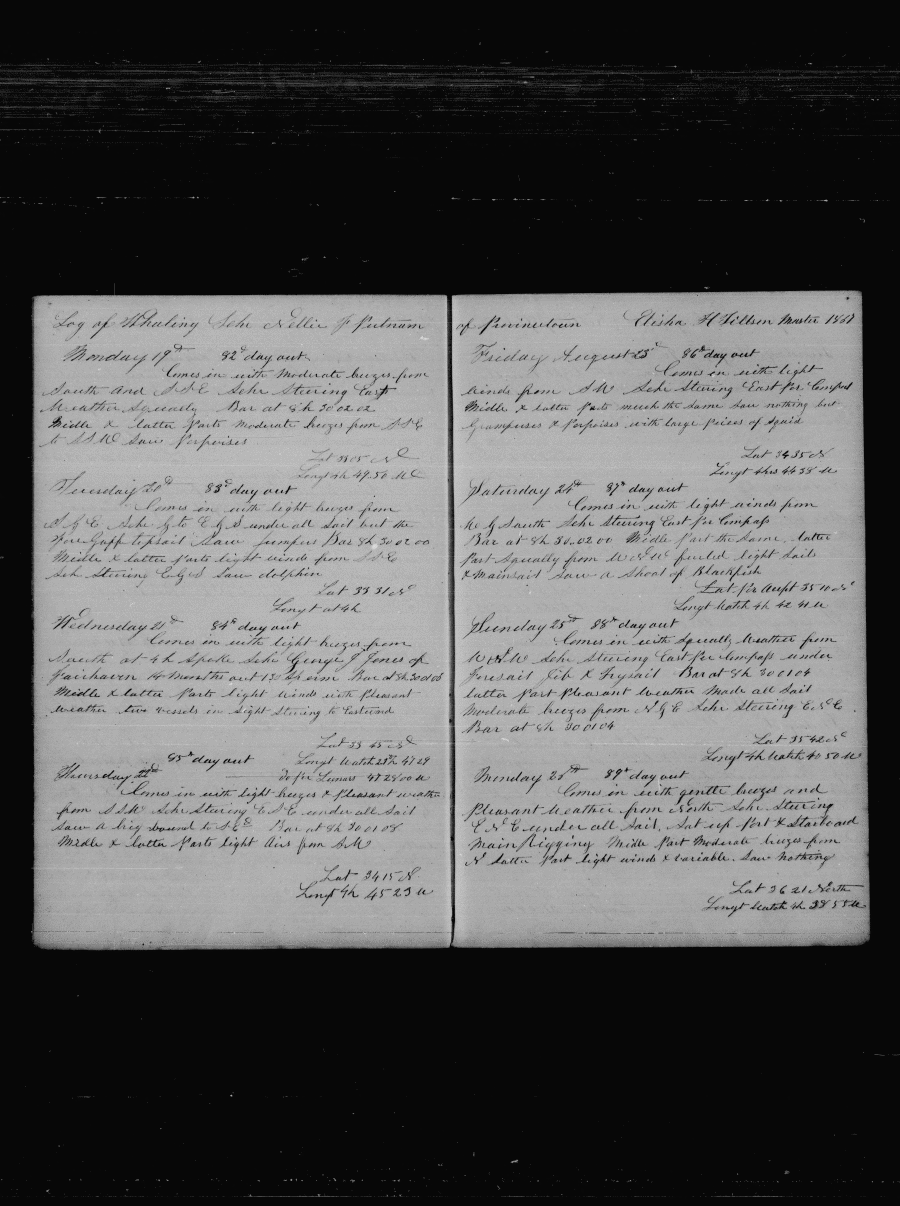 Log of Whaling Schr Nellie J Putnam
Monday 19th 82d day out
Comes in with Moderate breezes from
South and S S E Schr Steering East
Weather Squally Bar at 8h 30 02 02
Middle & latter Parts Moderate breezes from S S E
to S S W Saw Porpoises
Lat 33 05 N
Longt 4h 49.50 W
Tuesday 20th 83d day out
Comes in with light breezes from
S & E Schr E & S under all Sail but the
Fore Gaff topsail Saw Jumpers Bar 8h 30 02 00
Middle & latter parts light winds from S S E
Sch Steering E & S Saw dolphin
Lat 33 31 N
Longt at 4h
Wednesday 21st 84th day out
Comes in with light breezes from
South at 4h Spoke Schr George J Jones of
Fairhaven 14 Months out Sperm Bar at 8h 30 01 05
Middle & latter Parts light winds with Pleasant
weather two vessels in Sight Steering to Eastward
Lat 33 45 N
Longt Watch 47 29
do per Lunars 47 28 00 W
Thursday 22d 85th day out
Comes in with light breezes & Pleasant weather
from S S W Schr Steering E S E under all Sail
Saw a brig bound to S E Bar at 8h 30 01 08
Middle & latter Parts light airs from S W
Lat 34 15 N
Longt 4h 45 23 W
of Provincetown Elisha H Tillson Master 1867
Friday August 23d 86th day out
Comes in with light
winds from S W Schr Steering East per Compass
Middle & latter Parts much the same Saw nothing but
Grampuses & Porpoises with large Peices of Squid
Lat 34 35 N
Longt 4hrs 44 38 W
Saturday 24th 87th day out
Comes in with light winds from
W & South Schr Steering East per Compass
Bar at 8h 30.02.00 Middle Part the Same. latter
Part Squally from W N W furled light Sails
& Mainsail Saw a Shoal of Blackfish
Lat per Acupt 35 10 N
Longt Watch 4h 42 41 W
Sunday 25th 88th day out
Comes in with Squally Weather from
W N W Schr Steering East per Compass under
Foresail Jib & Trysail Bar at 8h 30 01 04
latter Part Pleasant Weather Made all Sail
Moderate breezes from N & E Schr Steering E N E
Bar at 8h 30 01 04
Lat 35 42 N
Longt 4h Watch 40 50 W
Monday 26th 89th day out
Comes in with gentle breezes and
Pleasant Weather from North Schr Steering
E N E under all Sail. Set up Port & Starboard
Main Rigging Midle Part Moderate breezes from
N latter Part light winds & variable. Saw Nothing
Lat 36 21 North
Longt Watch 4h 38 55 W